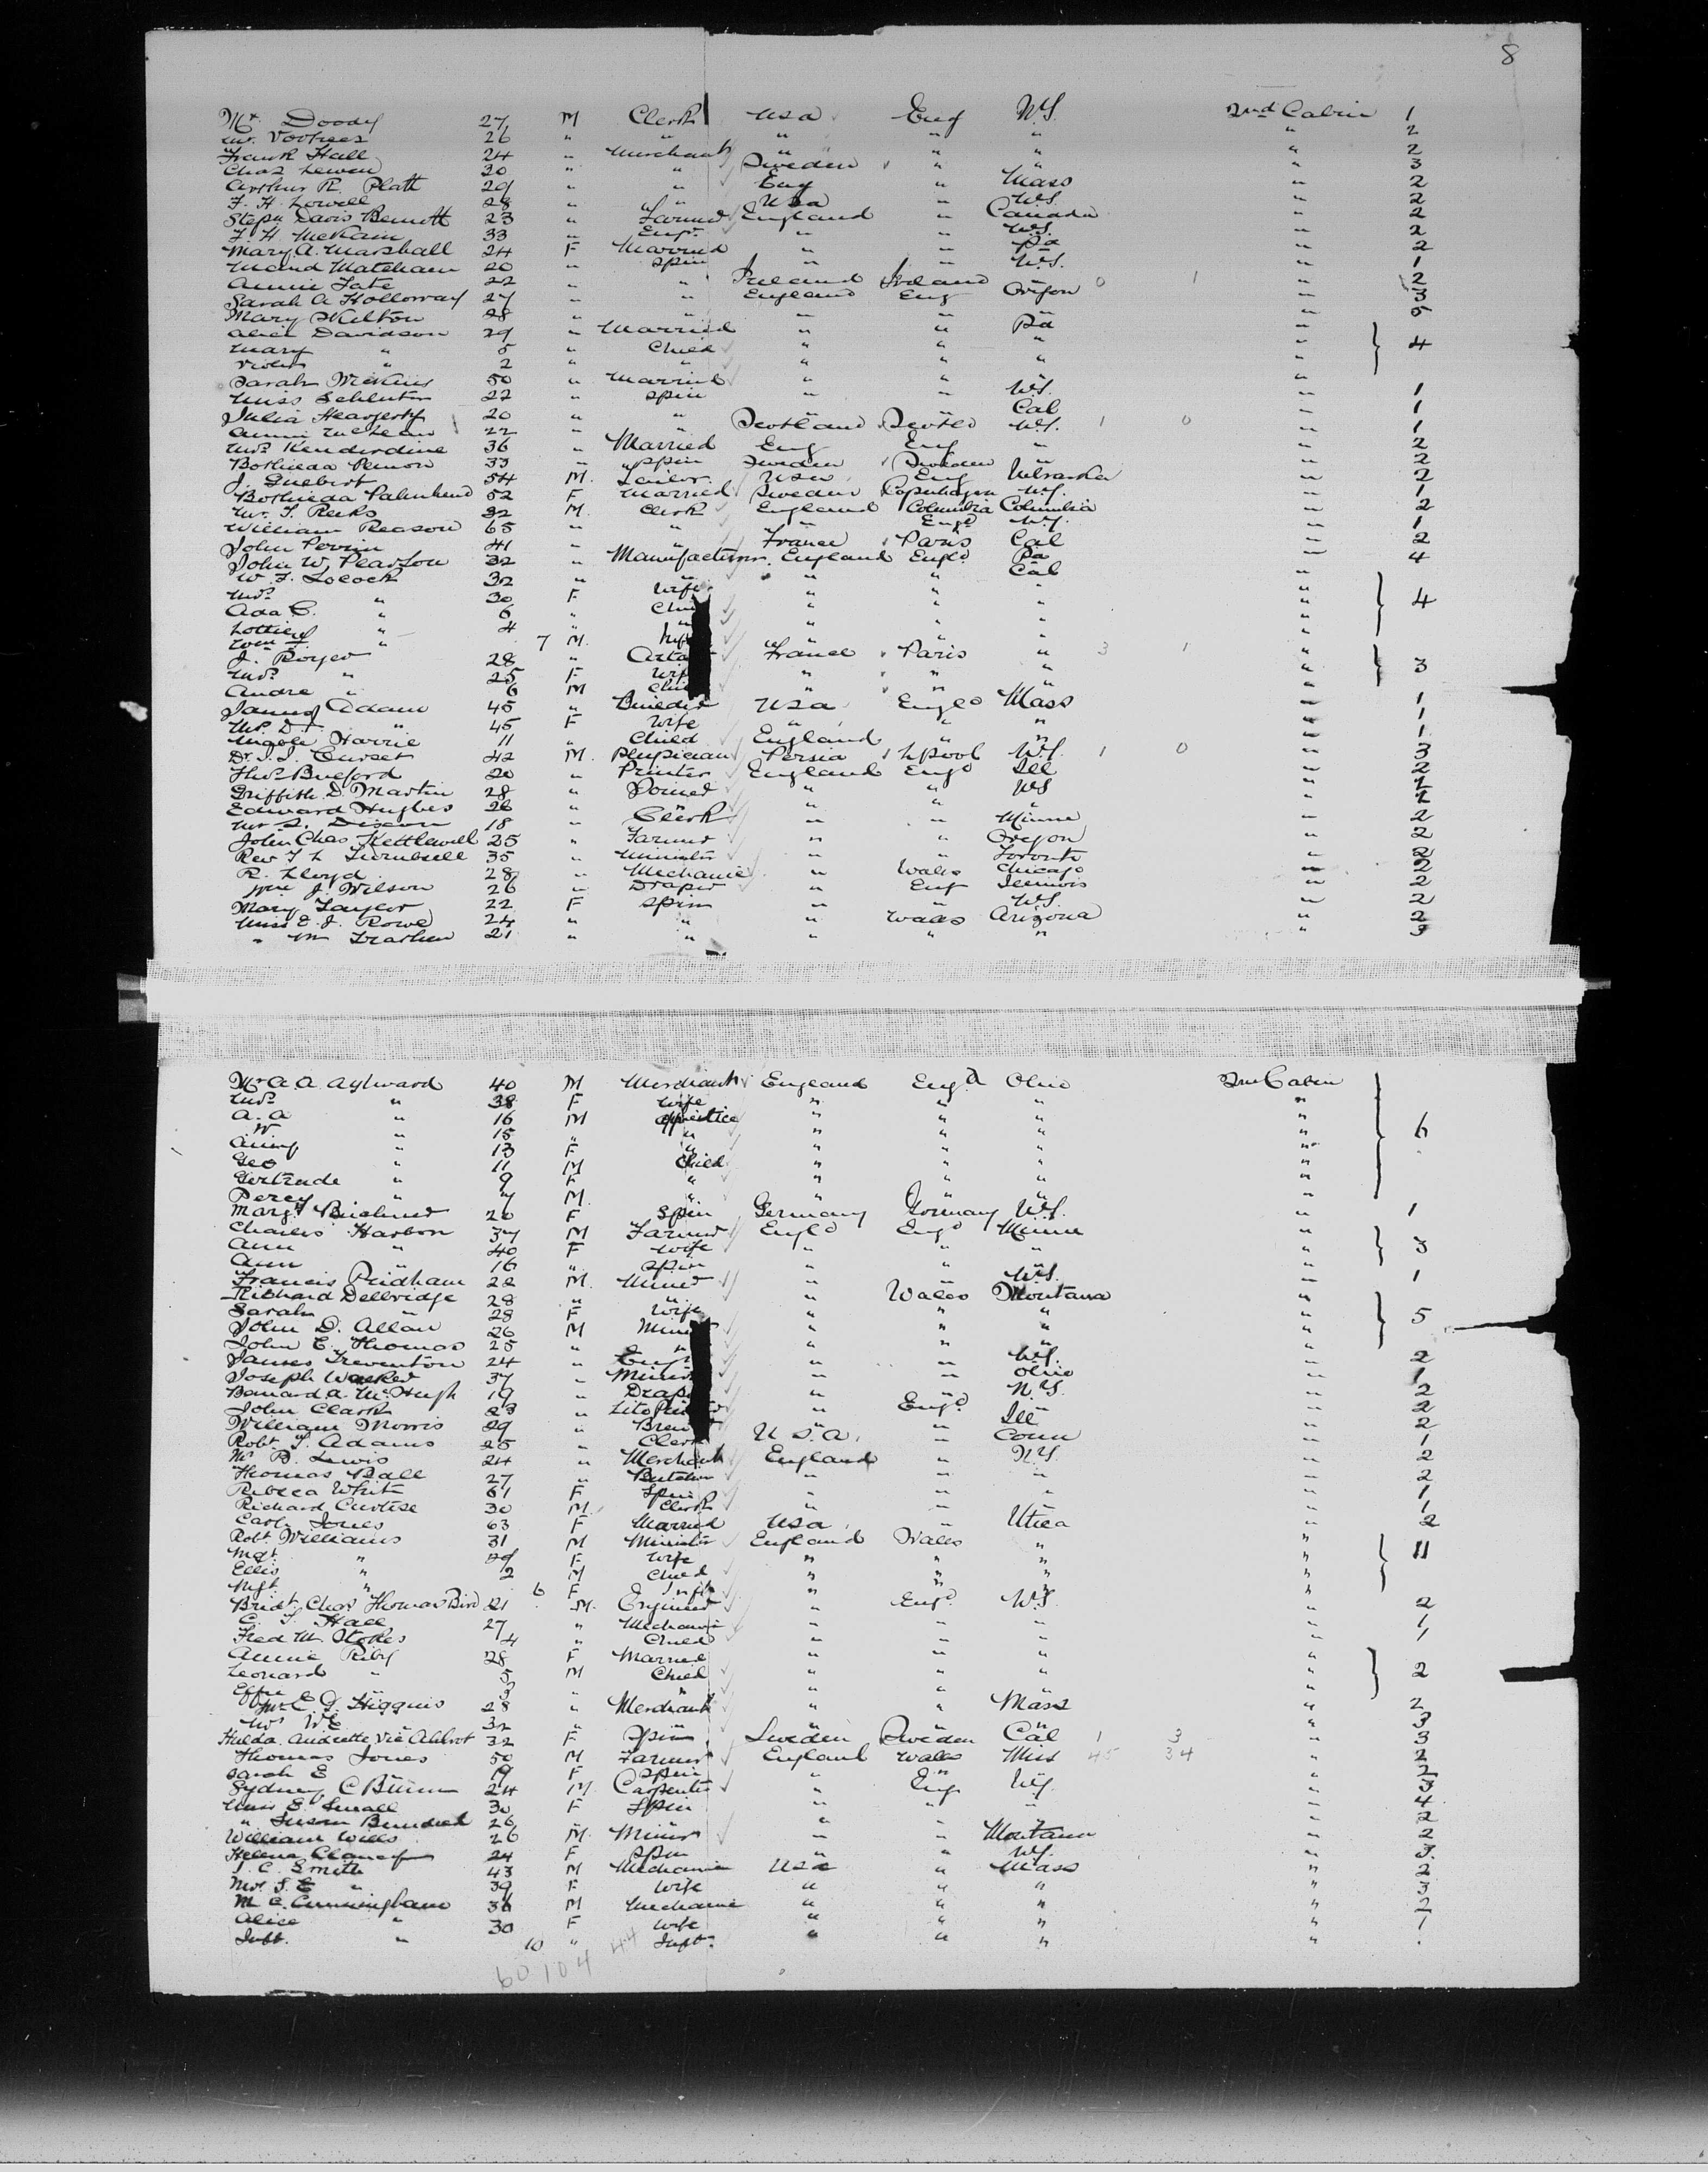 8
Mr. Doody 27 M Clerk USA Eng N.Y. 2nd Cabin 1
Mr. Voorhees 26 " " " " " " 2
Frank Hall 24 " Merchant " " " " 2
Chas Lewen 30 " " Sweden " " " 3
Arthur R. Platt 29 " " Eng " Mass " 2
F. H. Lowell 28 " " USA " N.Y. " 2
Steph Davis Bennett 23 " Farmer England " Canada " 2
F. H. McKain 33 " Engr. " " N.Y. " 2
Mary A. Marshall 24 F Married " " Pa " 2
Maud Matcham 20 " Spin " " N.Y. " 1
Annie Tate 22 " " Ireland Ireland " 0 1 " 2
Sarah A Holloway 27 " " England Eng Oregon " 3
Mary Skilton 28 " " " " " " 5
Alice Davidson 29 " Married " " Pa "
Mary " 5 " Child " " " " 4
Violet " 2 " " " " " "
Sarah Wickins 50 " Married " " " "
Miss Schluter 22 " Spin " " N.Y. " 1
Julia Heagerty 20 " " " " Cal " 1
Annie McLean 22 " " Scotland Scotld N.Y. 1 0 " 1
Mrs. Kenderdine 36 " Married Eng Eng " " 2
Bothieda 33 " Spin Sweden Sweden " " 2
J. 54 M. Sailor USA Eng Nebraska " 2
Bothieda 52 F Married Sweden Copenhagen N.Y. " 1
Mr. T. Reeks 32 M. Clerk England Columbia Columbia " 2
William Reason 65 " " " Engd N.Y. " 1
John Perrin 41 " " France Paris Cal " 2
John W. Pearson 32 " Manufacturer England Engld. Pa " 4
W. F. Locock 32 " " " " Cal "
Mrs. " 30 F Wife " " " "
Ada C. " 6 " " " " " 4
Lottie " 4 " " " " " "
Wm F. " 7 M. " " " "
J. Royer 28 " France Paris " 3 1 "
Mrs. " 25 F " " " " 3
Andre " 6 M " " " "
James Adam 45 " Builder USA Engld Mass " 1
Mrs. D. " 45 F Wife " " " " 1
Harrie 11 " Child England " " " 1
Dr. J. J. Cursetjee 42 M. Physician Persia Lpool N.Y. 1 0 " 3
Thos. Buckford 20 " Printer England Engd Ill " 2
Griffith D. Martin 28 " Joiner " " N.Y. " 2
Edward Hughes 26 " " " " " " 2
Mr S. 18 " Clerk " " Minne " 2
John Chas Kettlewell 25 " Farmer " " Oregon " 2
Rev T L Turnbull 35 " Minister " " Toronto " 2
R. Lloyd 28 " Mechanic " Wales Chicago " 2
Wm J. Wilson 26 " Draper " Eng Illinois " 2
Mary Taylor 22 F Spin " " N.Y. " 2
Miss E. J. Rowe 24 " " " Wales Arizona " 2
" M 21 " " " " " " 3
Mr A. A. Aylward 40 M Merchant England Engd Ohio 2nd Cabin
Mrs. " 38 F Wife " " " "
A. A " 16 M Apprentice " " " "
W " 15 " " " " " " 6
Aimy " 13 F " " " " "
Geo " 11 M Child " " " "
Gertrude " 9 F " " " " "
Percy " 7 M. " " " " "
Margt. 26 F Spin Germany Germany N.Y. " 1
Charles Harbon 37 M Farmer Engld Engd Minne "
Ann " 40 F Wife " " " " 3
Ann " 16 " Spin " " " "
Francis Pridham 22 M. Miner " " N.Y. " 1
Richard Delbridge 28 " " " Wales Montana "
Sarah " 28 F Wife " " " " 5
John D. Allan 26 M Miner " " " "
John E. Thomas 25 " " " " " "
James Treventon 24 " " " N.Y. " 2
Joseph Walker 37 " Miner " " Ohio " 1
Barnard A. McHugh 19 " " " N.Y. " 2
John Clark 23 " " Engd. " " 2
William Morris 29 " " " Ill " 2
Robt. J. Adams 25 " Clerk U.S.A. " Conn " 1
Mr B. Lewis 24 " Merchant England " N.Y. " 2
Thomas Ball 27 " Butcher " " " " 2
Rebeca White 61 F Spin " " " " 1
Richard Curtise 30 M. Clerk " " " " 1
Cath. Jones 63 F Married USA " Utica " 2
Robt. Williams 31 M Minister England Wales " "
Mgt. " 29 F Wife " " " " 11
Ellis " 2 M Child " " " "
Mgt. " 6 F Inft " " " "
Bridt. Chas Thomas Bird 21 M. Engineer " Engd. N.Y. " 2
C. T. Hall 27 " Mechanic " " " " 1
Fred M. Stokes 4 " Child " " " " 1
Annie Riby 28 F Married " " " "
Leonard " 5 M Child " " " " 2
Effie " 3 " " " " "
Mr E. J. Higgins 28 " Merchant " " Mass " 2
Mr W. E. 32 " " " " " 3
Hulda Andrette Via Ahlrot 32 F Spin Sweden Sweden Cal 1 3 " 3
Thomas Jones 50 M Farmer England Wales Miss 45 34 " 2
Sarah E " 19 F Spin " " " " 2
Sydney C 24 M. Carpenter " Eng N.Y. " 3
Miss E. Small 30 F Spin " " " " 4
" Susan 26 " " " " " 2
William Wills 26 M. Miner " " Montana " 2
Helena Clancy 24 F Spin " " N.Y. " 3
J. C. Smith 43 M Mechanic USA " Mass " 2
Mrs. S. E " 39 F Wife " " " " 3
M C. Cunningham 36 M Mechanic " " " " 2
Alice " 30 F Wife " " " " 1
Inft. " 10 " Inft. " " " "
60 104 44